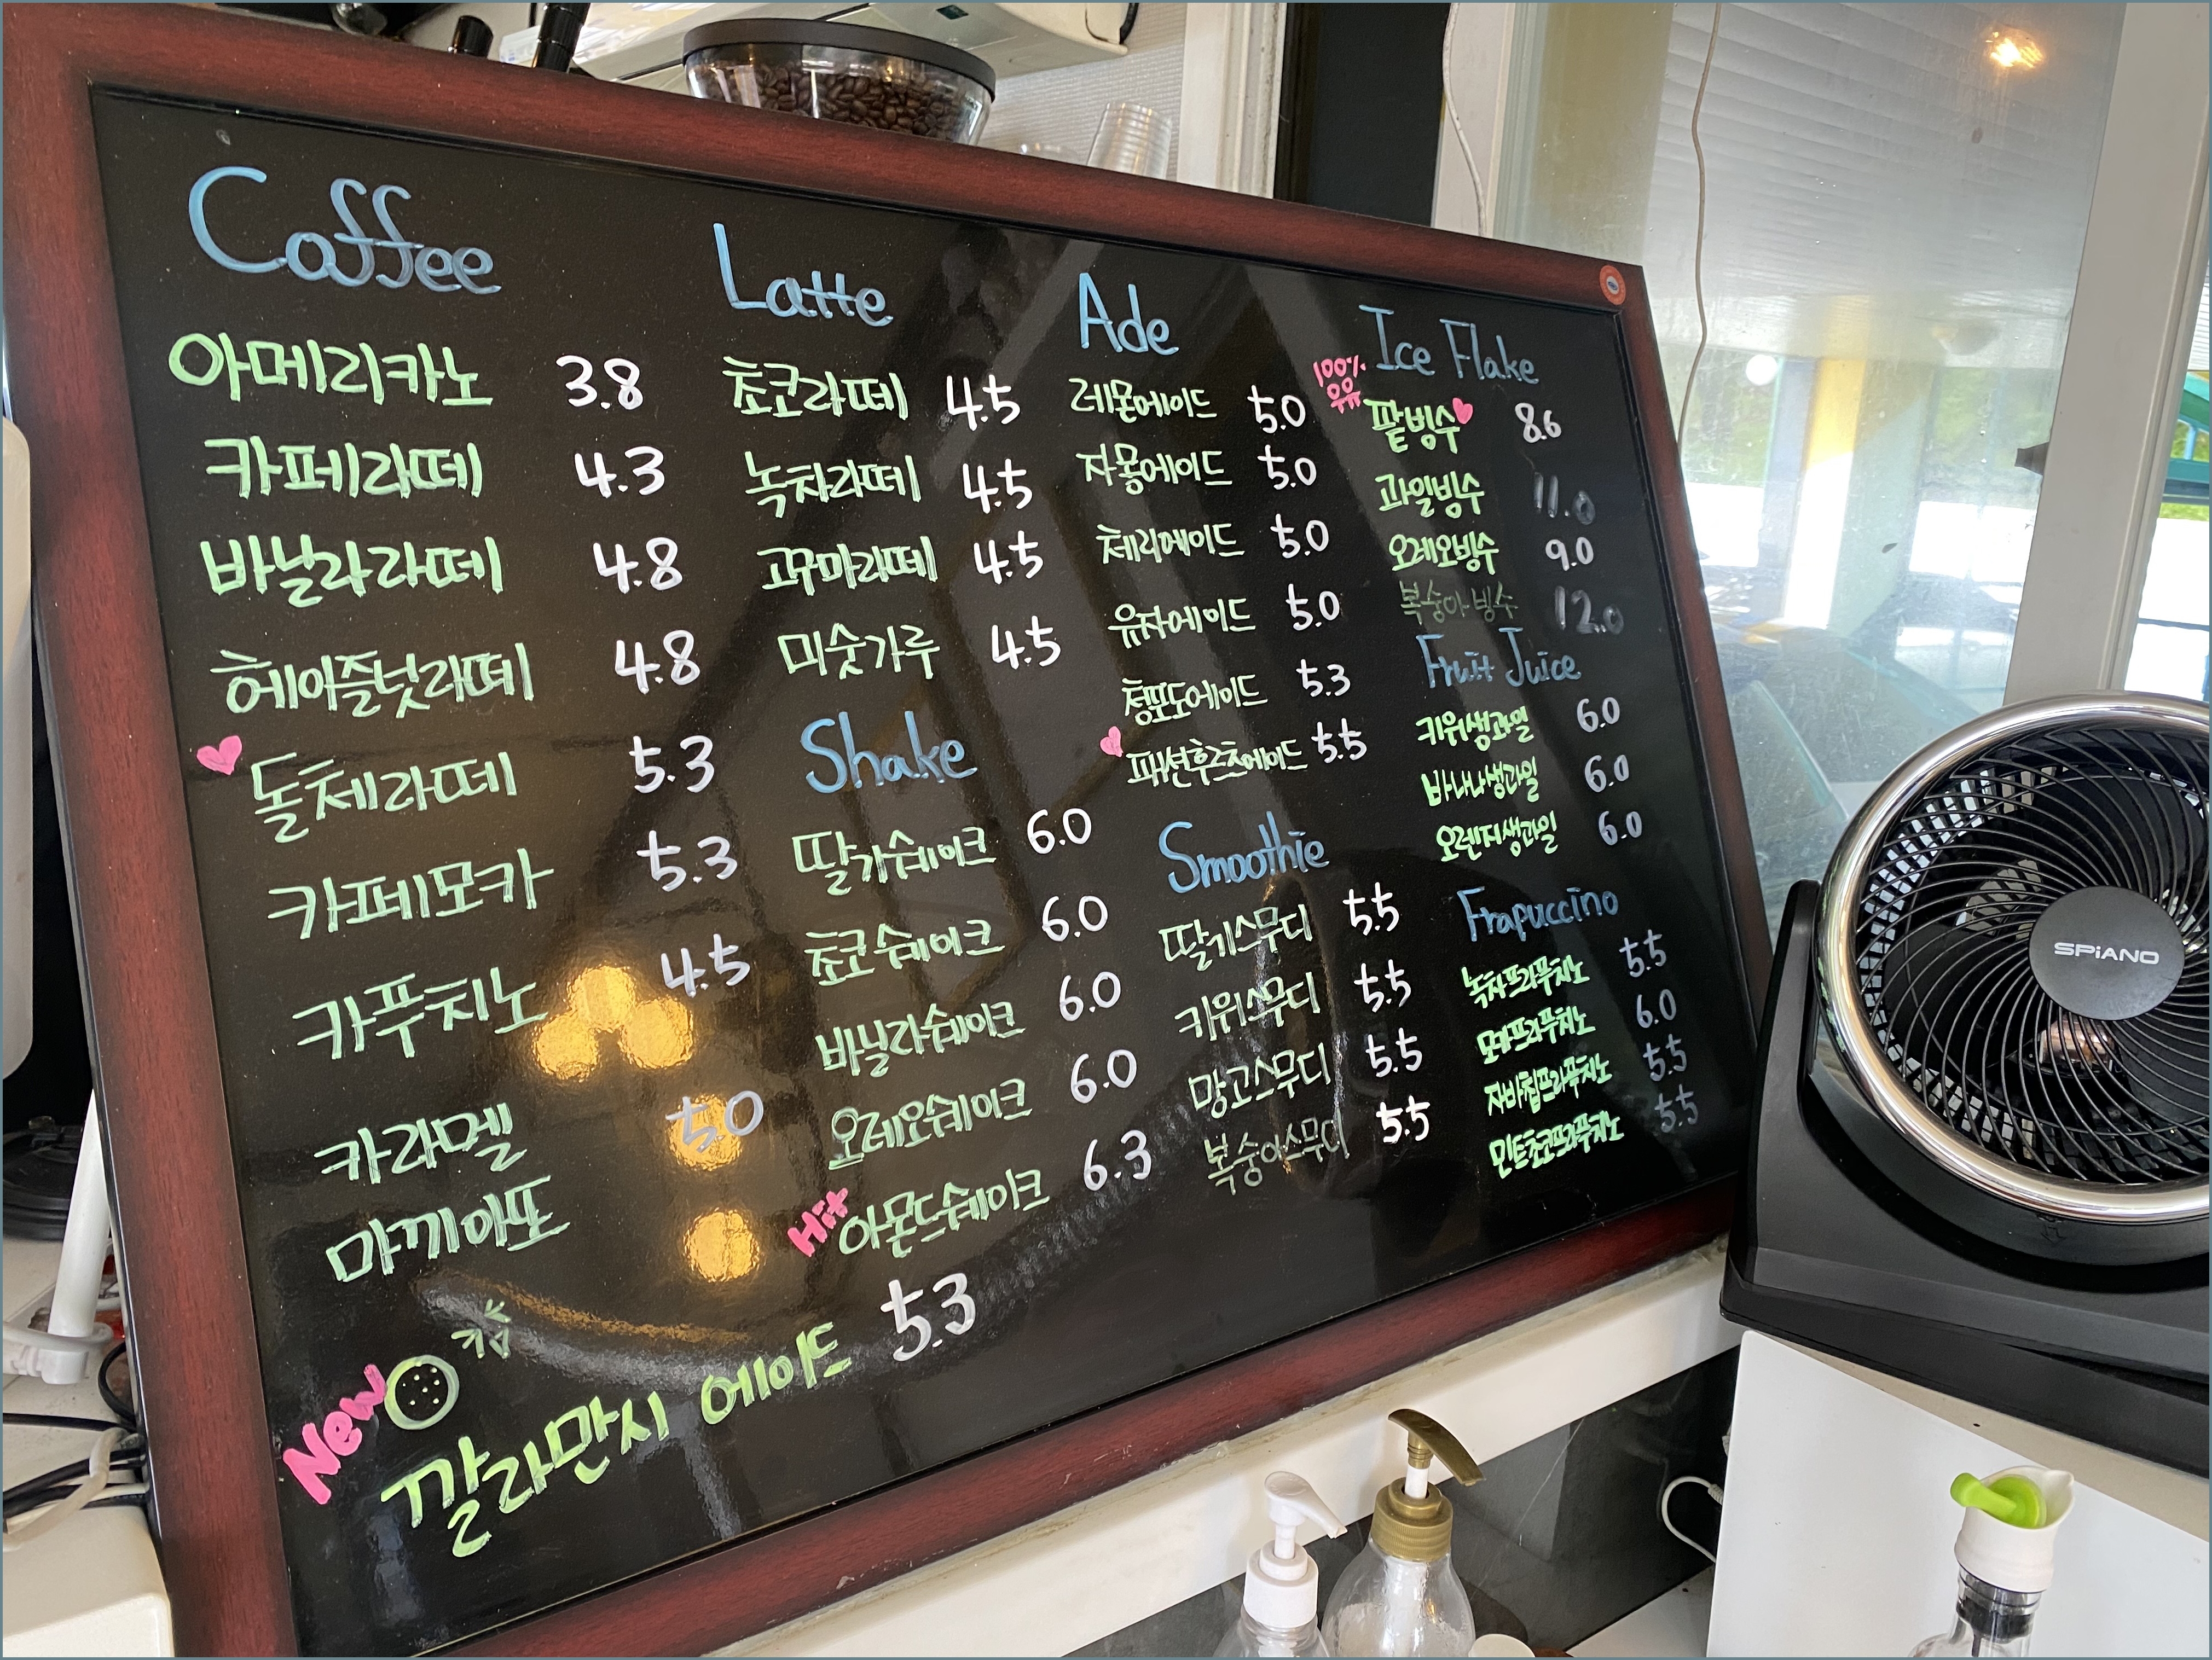 Coffee
아메리카노 3.8
카페라떼 4.3
바닐라라떼 4.8
헤이즐넛라떼 4.8
돌체라떼 5.3
카페모카 5.3
카푸치노 4.5
카라멜 5.0
마끼아또
Latte
초코라떼 4.5
녹차라떼 4.5
고구마라떼 4.5
미숫가루 4.5
Shake
딸기쉐이크 6.0
초코쉐이크 6.0
바닐라쉐이크 6.0
오레오쉐이크 6.0
Hit 아몬드쉐이크 6.3
Ade
레몬에이드 5.0
자몽에이드 5.0
체리에이드 5.0
유자에이드 5.0
청포도에이드 5.3
패션후르츠에이드 5.5
Smoothie
딸기스무디 5.5
키위스무디 5.5
망고스무디 5.5
복숭아스무디 5.5
Ice Flake
100%
팥빙수 8.6
과일빙수 11.0
오레오빙수 9.0
복숭아빙수 12.0
Fruit Juice
키위생과일 6.0
바나나생과일 6.0
오렌지생과일 6.0
Frapuccino
녹차프라푸치노 5.5
모카프라푸치노 6.0
자바칩프라푸치노 5.5
민트초코프라푸치노 5.5
New
깔라만시 에이드 5.3
SPiANO